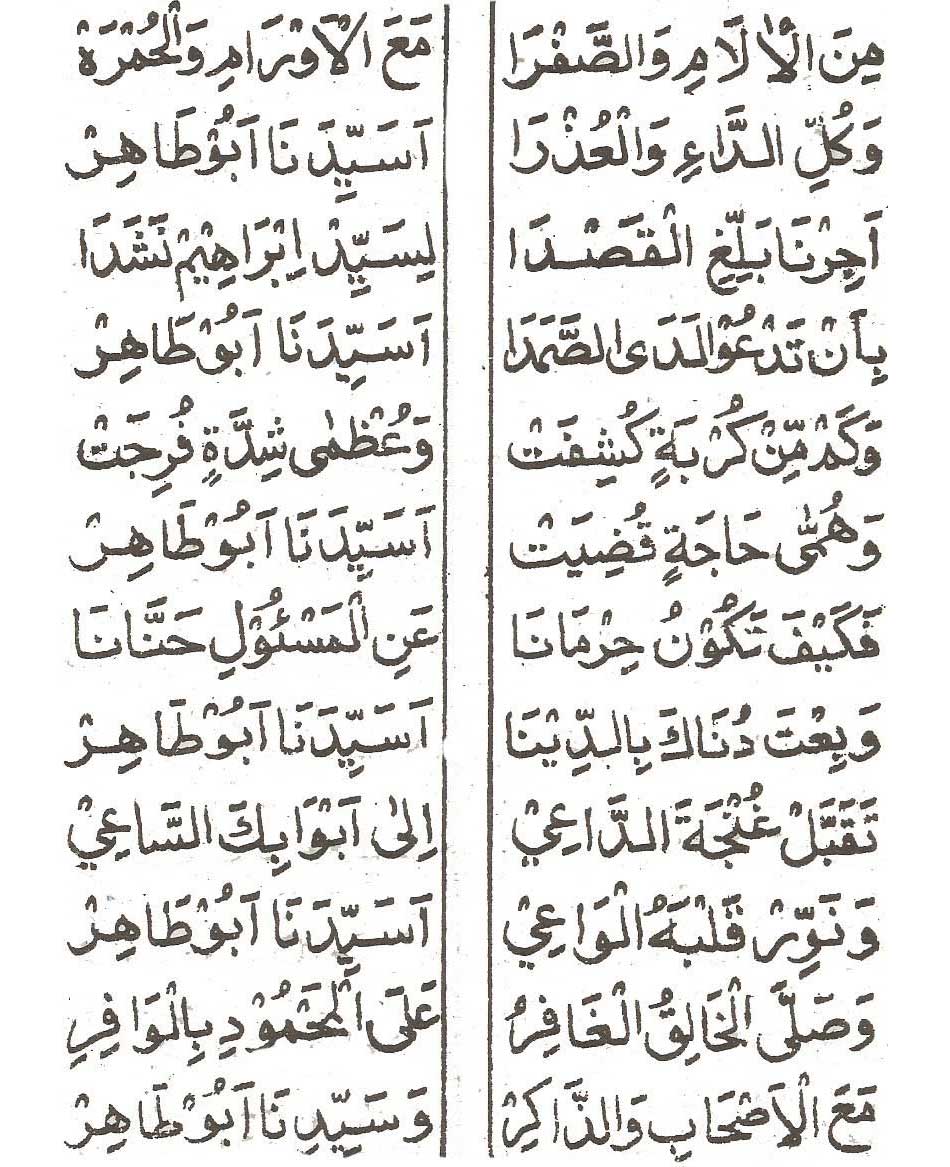 مِنَ الْاٰلَامِ وَالصَّفْرَا مَعَ الْاَوْرَامِ وَالْحُمْرَةْ
وَكُلِّ الدَّاءِ وَالْعُذْرَا اَسَيِّدَنَا اَبُوْطَاهِرْ
اَجِرْنَا بَلِّغِ الْقَصْدَا لِسَيِّدْ اِبْرَاهِيْمْ نَشَدَا
بِأَنْ تَدْعُوْ لَدَى الصَّمَدَا اَسَيِّدَنَا اَبُوْطَاهِرْ
وَكَمْ مِّنْ كُرْبَةٍ كُشِفَتْ وَعُظْمٰى شِدَّةٍ فُرِجَتْ
وَهُمّٰى حَاجَةٍ قُضِيَتْ اَسَيِّدَنَا اَبُوْطَاهِرْ
فَكَيْفَ تَكُوْنُ حِرْمَانَا عَنِ الْمَسْئُوْلِ حَنَّانَا
وَبِعْتَ دُنَاكَ بِالدِّيْنَا اَسَيِّدَنَا اَبُوْطَاهِرْ
تَقَبَّلْ غُنْجَةَ الدَّاعِيْ اِلٰى اَبْوَابِكَ السَّاعِيْ
وَنَوِّرْ قَلْبَهُ الْوَاعِيْ اَسَيِّدَنَا اَبُوْطَاهِرْ
وَصَلَّى الْخَالِقُ الْغَافِرُ عَلَى الْمَحْمُوْدِ بِالْوَافِرِ
مَعَ الْاَصْحَابِ وَالذَّاكِرْ وَسَيِّدِنَا اَبُوْطَاهِرْ